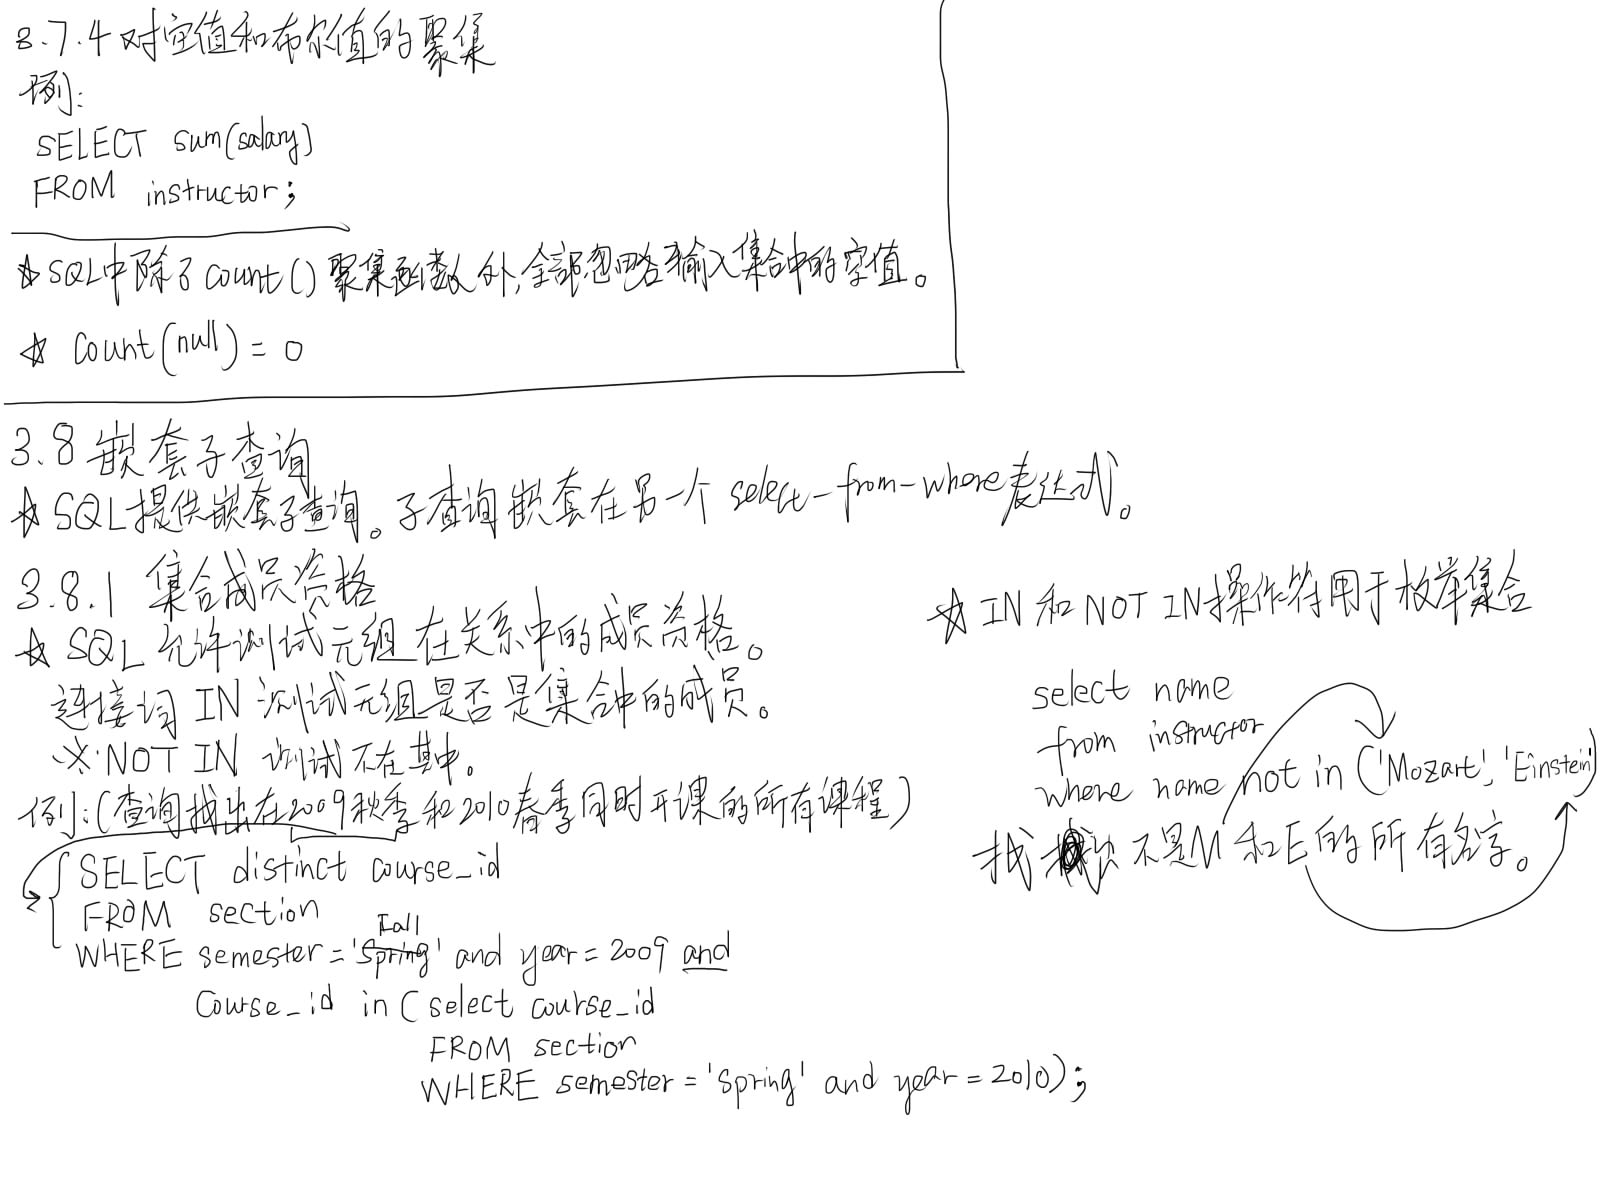 3.7.4 对空值和布尔值的聚集
例:
SELECT sum(salary)
FROM instructor;
☆ SQL中除了count()聚集函数外,全部忽略输入集合中的空值。
☆ Count(null) = 0
3.8 嵌套子查询
☆ SQL提供嵌套子查询。子查询嵌套在另一个 select-from-where表达式。
3.8.1 集合成员资格
☆ SQL 允许测试元组在关系中的成员资格。
连接词 IN 测试元组是否是集合中的成员。
※NOT IN 测试不在其中。
例:(查询找出在2009秋季和2010春季同时开课的所有课程)
SELECT distinct course_id
FROM section
Fall
WHERE semester='Spring' and year=2009 and
Course_id in (select course_id
FROM section
WHERE semester='Spring' and year=2010);
☆ IN 和 NOT IN操作符用于枚举集合
select name
from instructor
where name not in ('Mozart','Einstein')
找出不是M和E的所有名字。